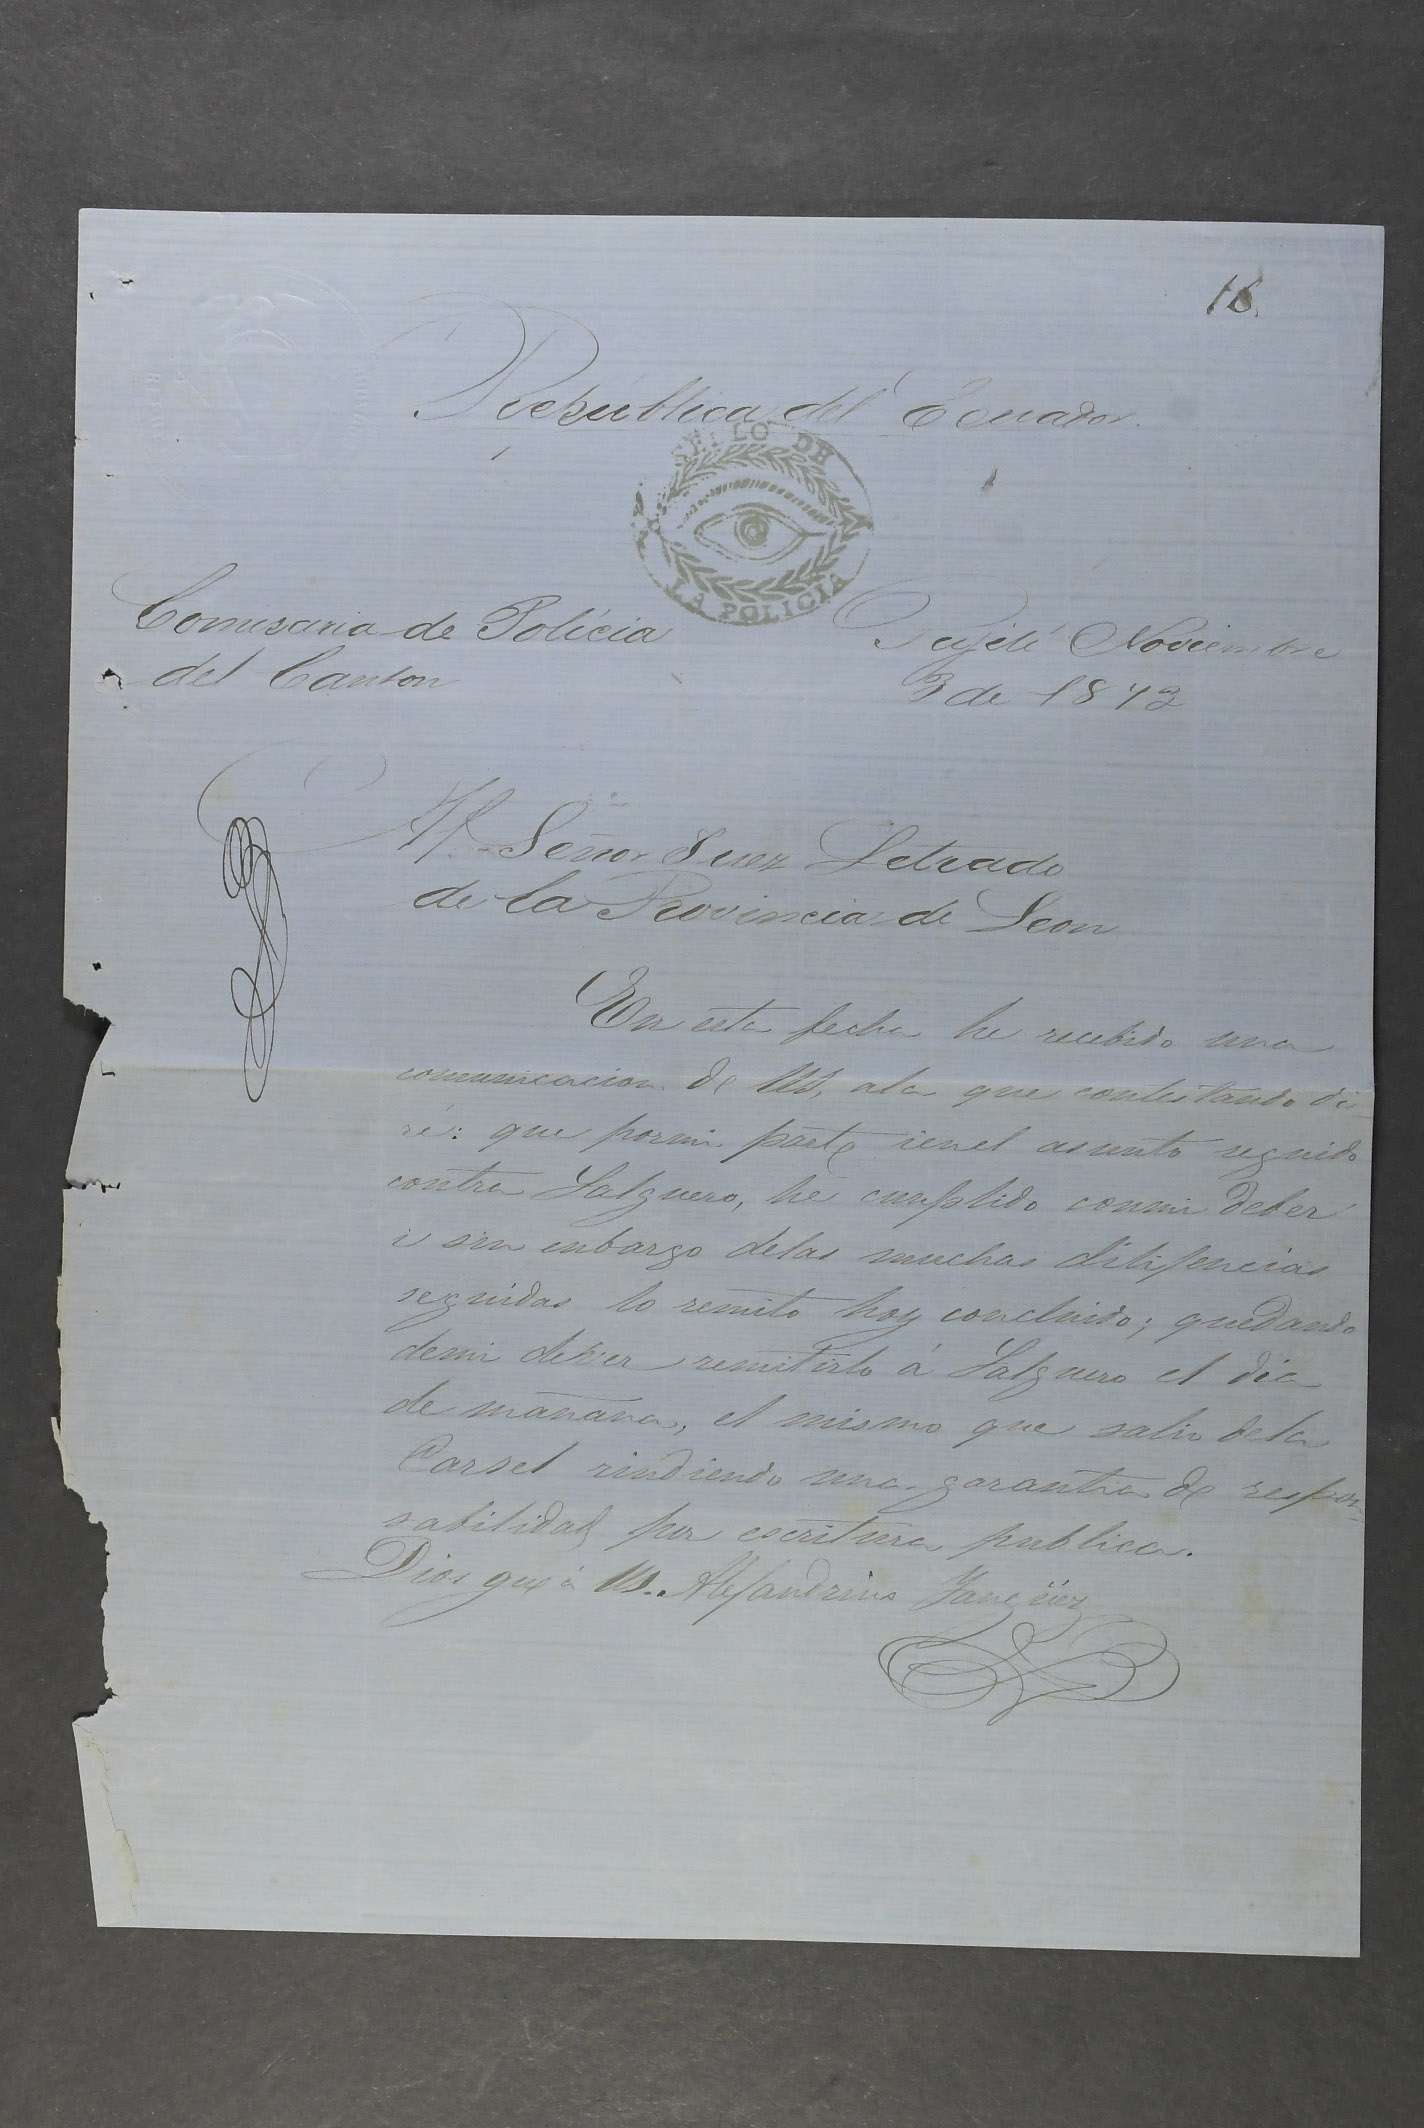 16.
República del Ecuador.
SELLO DE
LA POLICIA
Comisaria de Policia
del Canton
Pujilí Noviembre
3 de 1873
Al Señor Juez Letrado
de la Provincia de Leon
En esta fecha he recebido una
comunicacion de US, ala que contestando di-
ré: que pormi parte ienel asunto seguido
contra Salguero, he cumplido conmi deber
i sin enbargo delas muchas dilijencias
seguidas lo remito hoy concluido; quedando
demi deber remitirlo á Salguero el dia
de mañana, el mismo que salio dela
Carsel rindiendo una garantia de respon-
sabilidad por escritura publica.
Dios gue á US. Alejandrino Yangüez